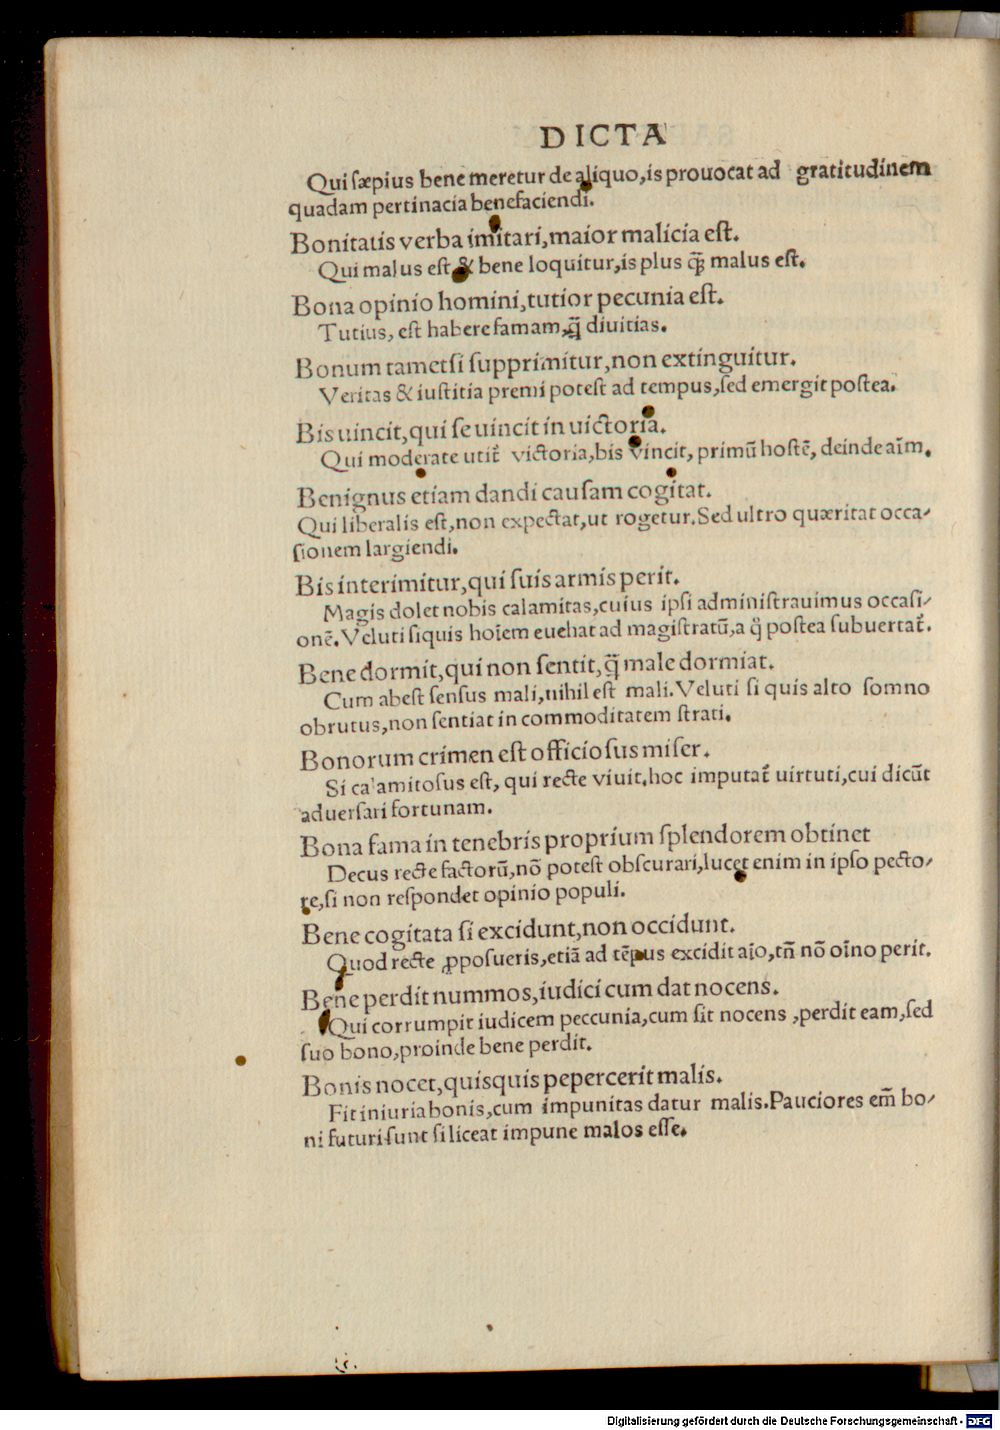 DICTA
Qui sæpius bene meretur de aliquo,is prouocat ad gratitudinem
quadam pertinacia benefaciendi.
Bonitatis verba imitari,maior malicia est.
Qui malus est & bene loquitur,is plus ꝙ̃ malus est.
Bona opinio homini,tutior pecunia est.
Tutius, est habere famam,q̃ diuitias.
Bonum tametsi supprimitur,non extinguitur.
Veritas & iustitia premi potest ad tempus,sed emergit postea.
Bis uincit,qui se uincit in uictoria.
Qui moderate utit᷑ victoria,bis vincit, primũ hostẽ, deinde aĩm.
Benignus etiam dandi causam cogitat.
Qui liberalis est,non expectat,ut rogetur.Sed ultro quæritat occa/
sionem largiendi.
Bis interimitur,qui suis armis perit.
Magis dolet nobis calamitas,cuius ipsi administrauimus occasi/
onẽ.Veluti siquis hoĩem euehat ad magistratũ,a q̃ postea subuertat᷑.
Bene dormit,qui non sentit,q̃ male dormiat.
Cum abest sensus mali,nihil est mali.Veluti si quis alto somno
obrutus,non sentiat in commoditatem strati.
Bonorum crimen est officiosus miser.
Si calamitosus est, qui recte viuit.hoc imputat᷑ uirtuti,cui dicũt
aduersari fortunam.
Bona fama in tenebris proprium splendorem obtinet
Decus recte factorũ,nõ potest obscurari,lucet enim in ipso pecto/
re,si non respondet opinio populi.
Bene cogitata si excidunt,non occidunt.
Quod recte ꝓposueris,etiã ad tẽpus excidit aĩo,tñ nõ oĩno perit.
Bene perdit nummos,iudici cum dat nocens.
Qui corrumpit iudicem peccunia,cum sit nocens ,perdit eam,sed
suo bono,proinde bene perdit.
Bonis nocet,quisquis pepercerit malis.
Fit iniuria bonis,cum impunitas datur malis.Pauciores em̃ bo/
ni futuri sunt si liceat impune malos esse.
Digitalisierung gefördert durch die Deutsche Forschungsgemeinschaft - DFG